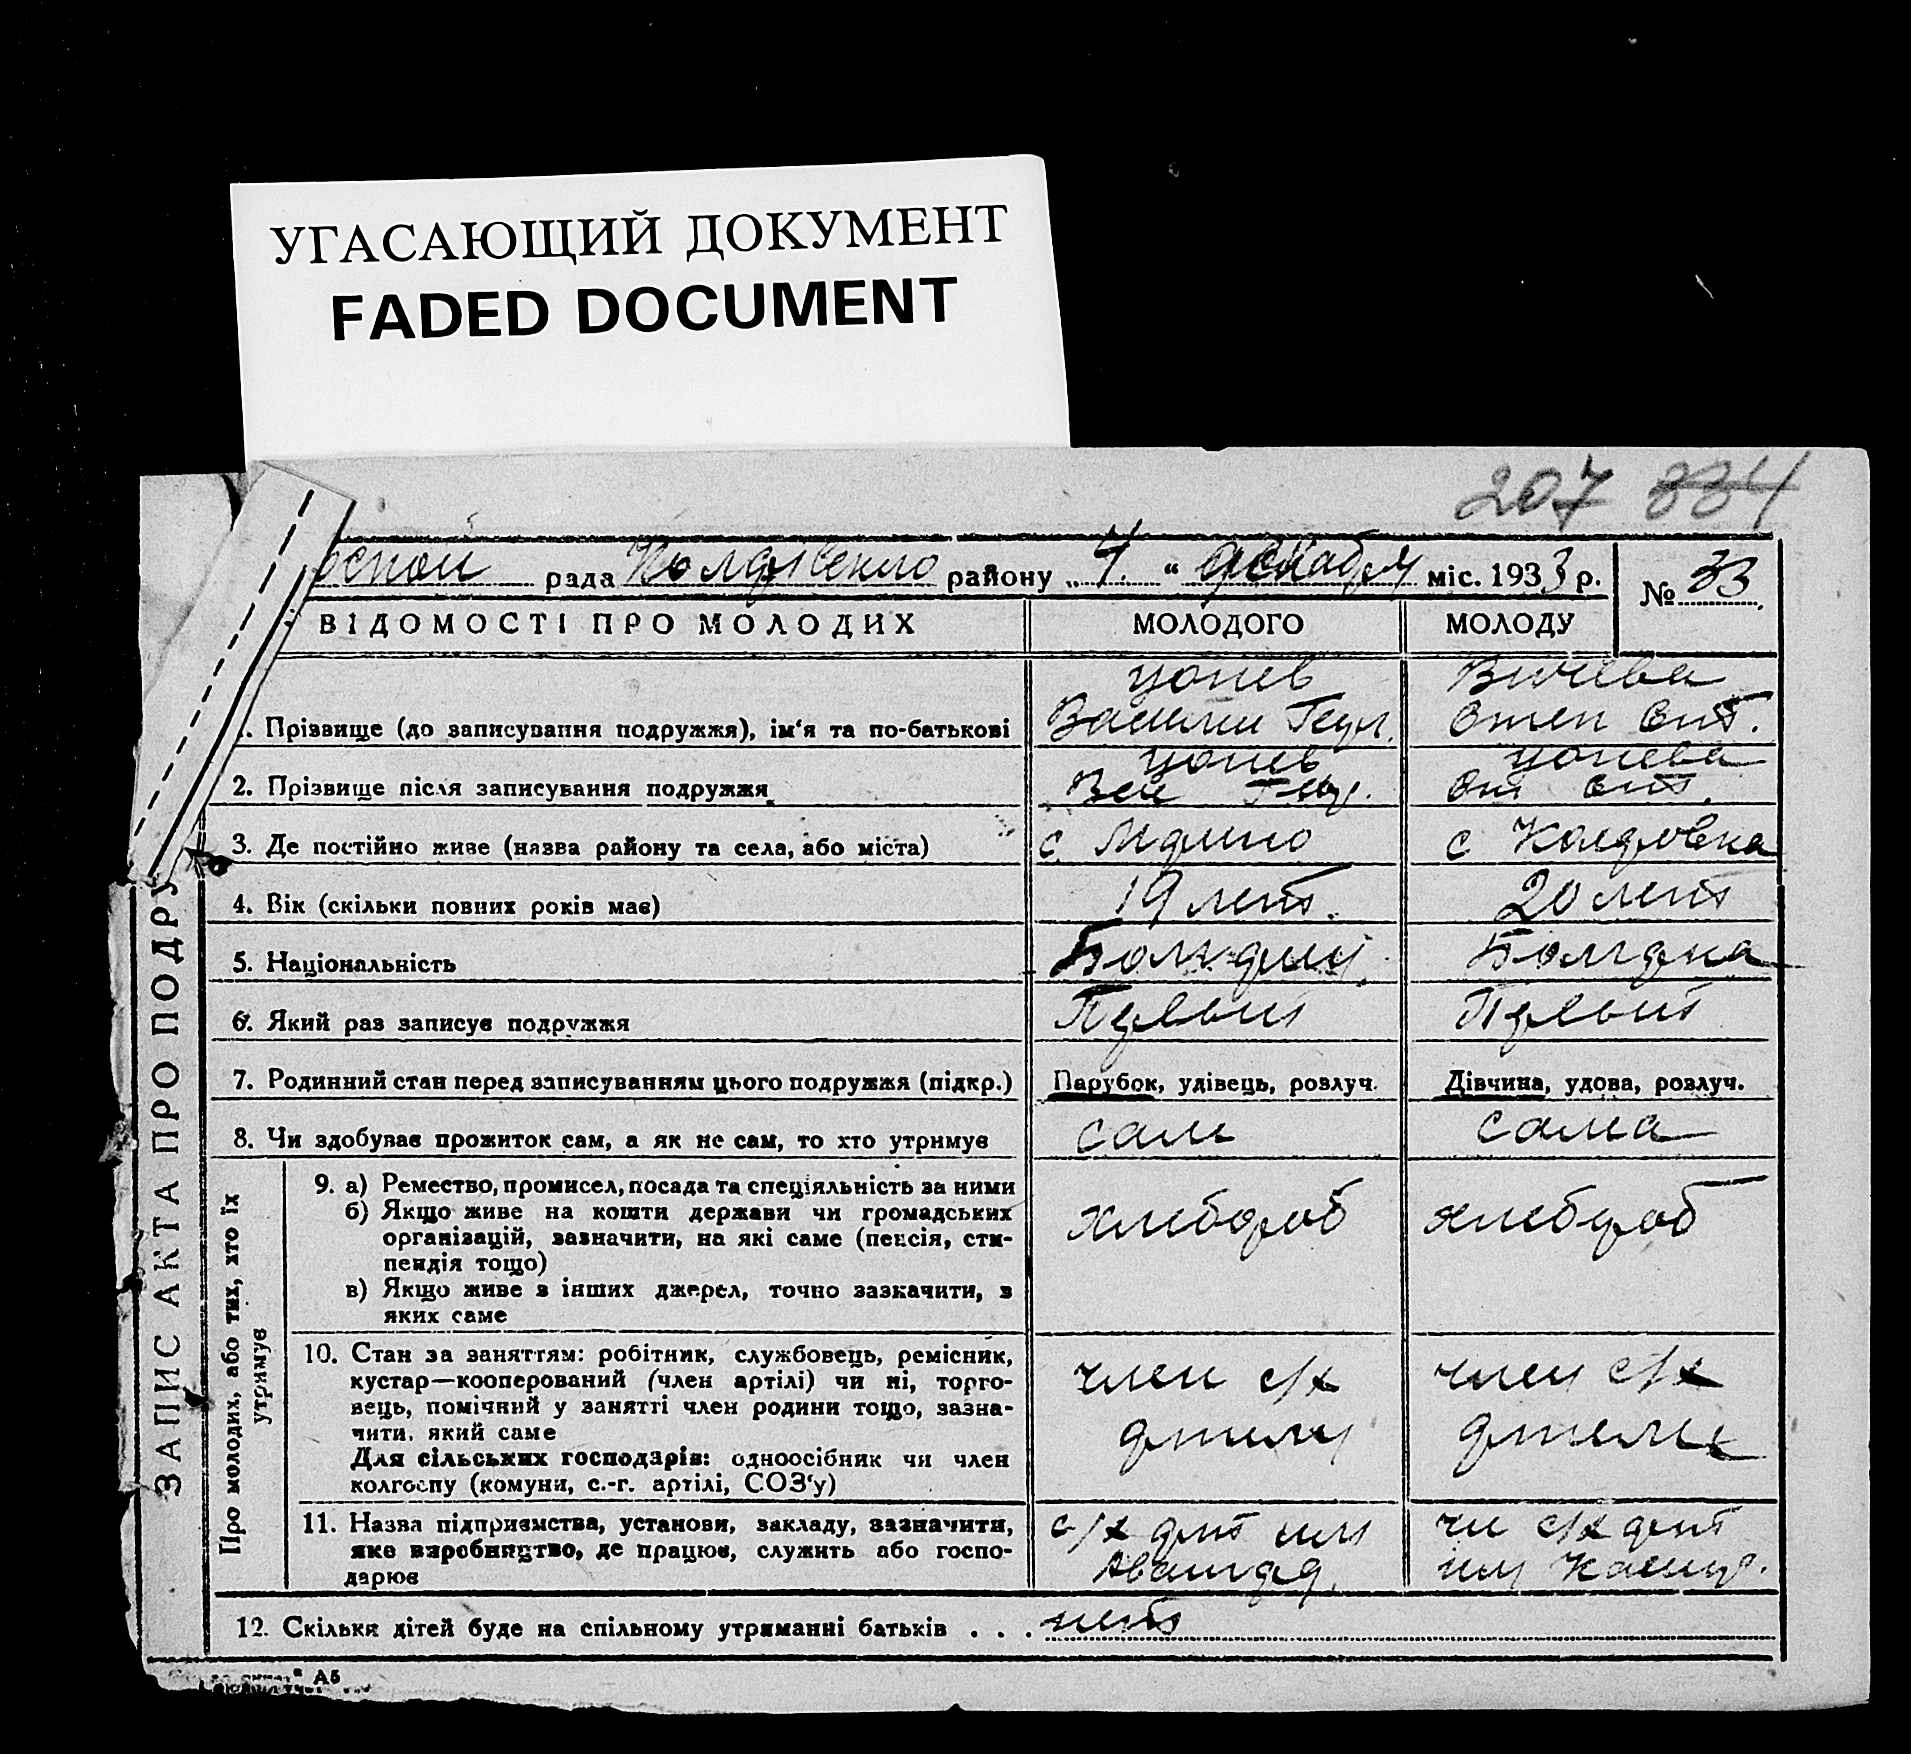 УГАСАЮЩИЙ ДОКУМЕНТ
FADED DOCUMENT
207 334
рада району „ 4. “ декабря міс. 1933 р.
№ 33
ВІДОМОСТІ ПРО МОЛОДИХ МОЛОДОГО МОЛОДУ
Цонев
Прізвище (до записування подружжя), ім'я та по-батькові
Цонев Цонева
2. Прізвище після записування подружжя
3. Де постійно живе (назва району та села, або міста) с. с
4. Вік (скільки повних років має) 19 лет. 20 лет
5. Національність
6. Який раз записує подружжя Первый Первый
7. Родинний стан перед записуванням цього подружжя (підкр.) Парубок, удівець, розлуч. Дівчина, удова, розлуч.
8. Чи здобуває прожиток сам, а як не сам, то хто утримує сам сама
Про молодих, або тих, хто їх
утримує
9. а) Ремество, промисел, посада та спеціяльність за ними
б) Якщо живе на кошти держави чи громадських хлебороб хлебороб
організацій, зазначити, на які саме (пенсія, сти-
пендія тощо)
в) Якщо живе з інших джерел, точно зазначити, з
яких саме
10. Стан за заняттям: робітник, службовець, ремісник,
кустар—кооперований (член артілі) чи ні, торго- член с/х член с/х
вець, помічний у занятті член родини тощо, зазна-
чити, який саме артели артели
Для сільських господарів: одноосібник чи член
колгоспу (комуни, с.-г. артілі, СОЗ'у)
11. Назва підприємства, установи, закладу, зазначити, с/х арт им чл с/х арт
яке виробництво, де працює, служить або госпо- им
дарює
12. Скільки дітей буде на спільному утриманні батьків . . . нет
ЗАПИС АКТА ПРО ПОДРУ
А5